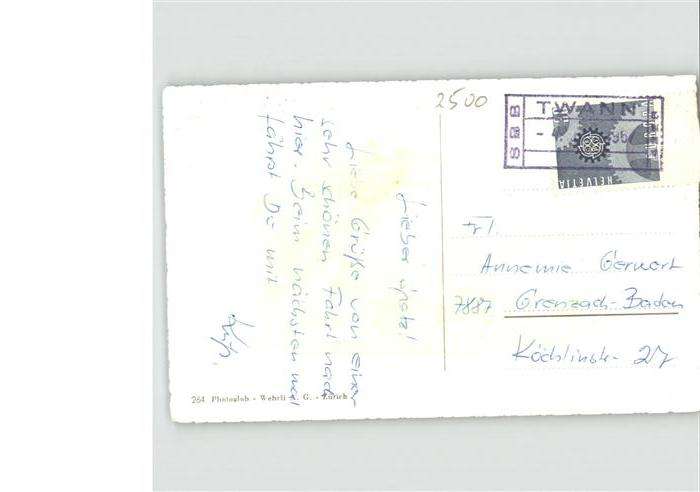 2500
SBB
TWANN
HELVETIA
Lieber Spatz!
Liebe Grüße von einer
sehr schönen Fahrt nach
hier. Beim nächsten mal
fährst Du mit
Frl.
Annemie Gerwort
7887 Grenzach-Baden
Köchlinstr. 27
264 Photoglob - Wehrli A. G. - Zürich